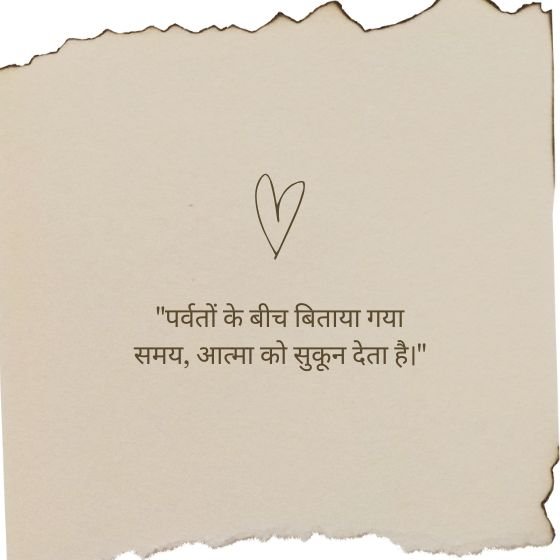 "पर्वतों के बीच बिताया गया
समय, आत्मा को सुकून देता है।"